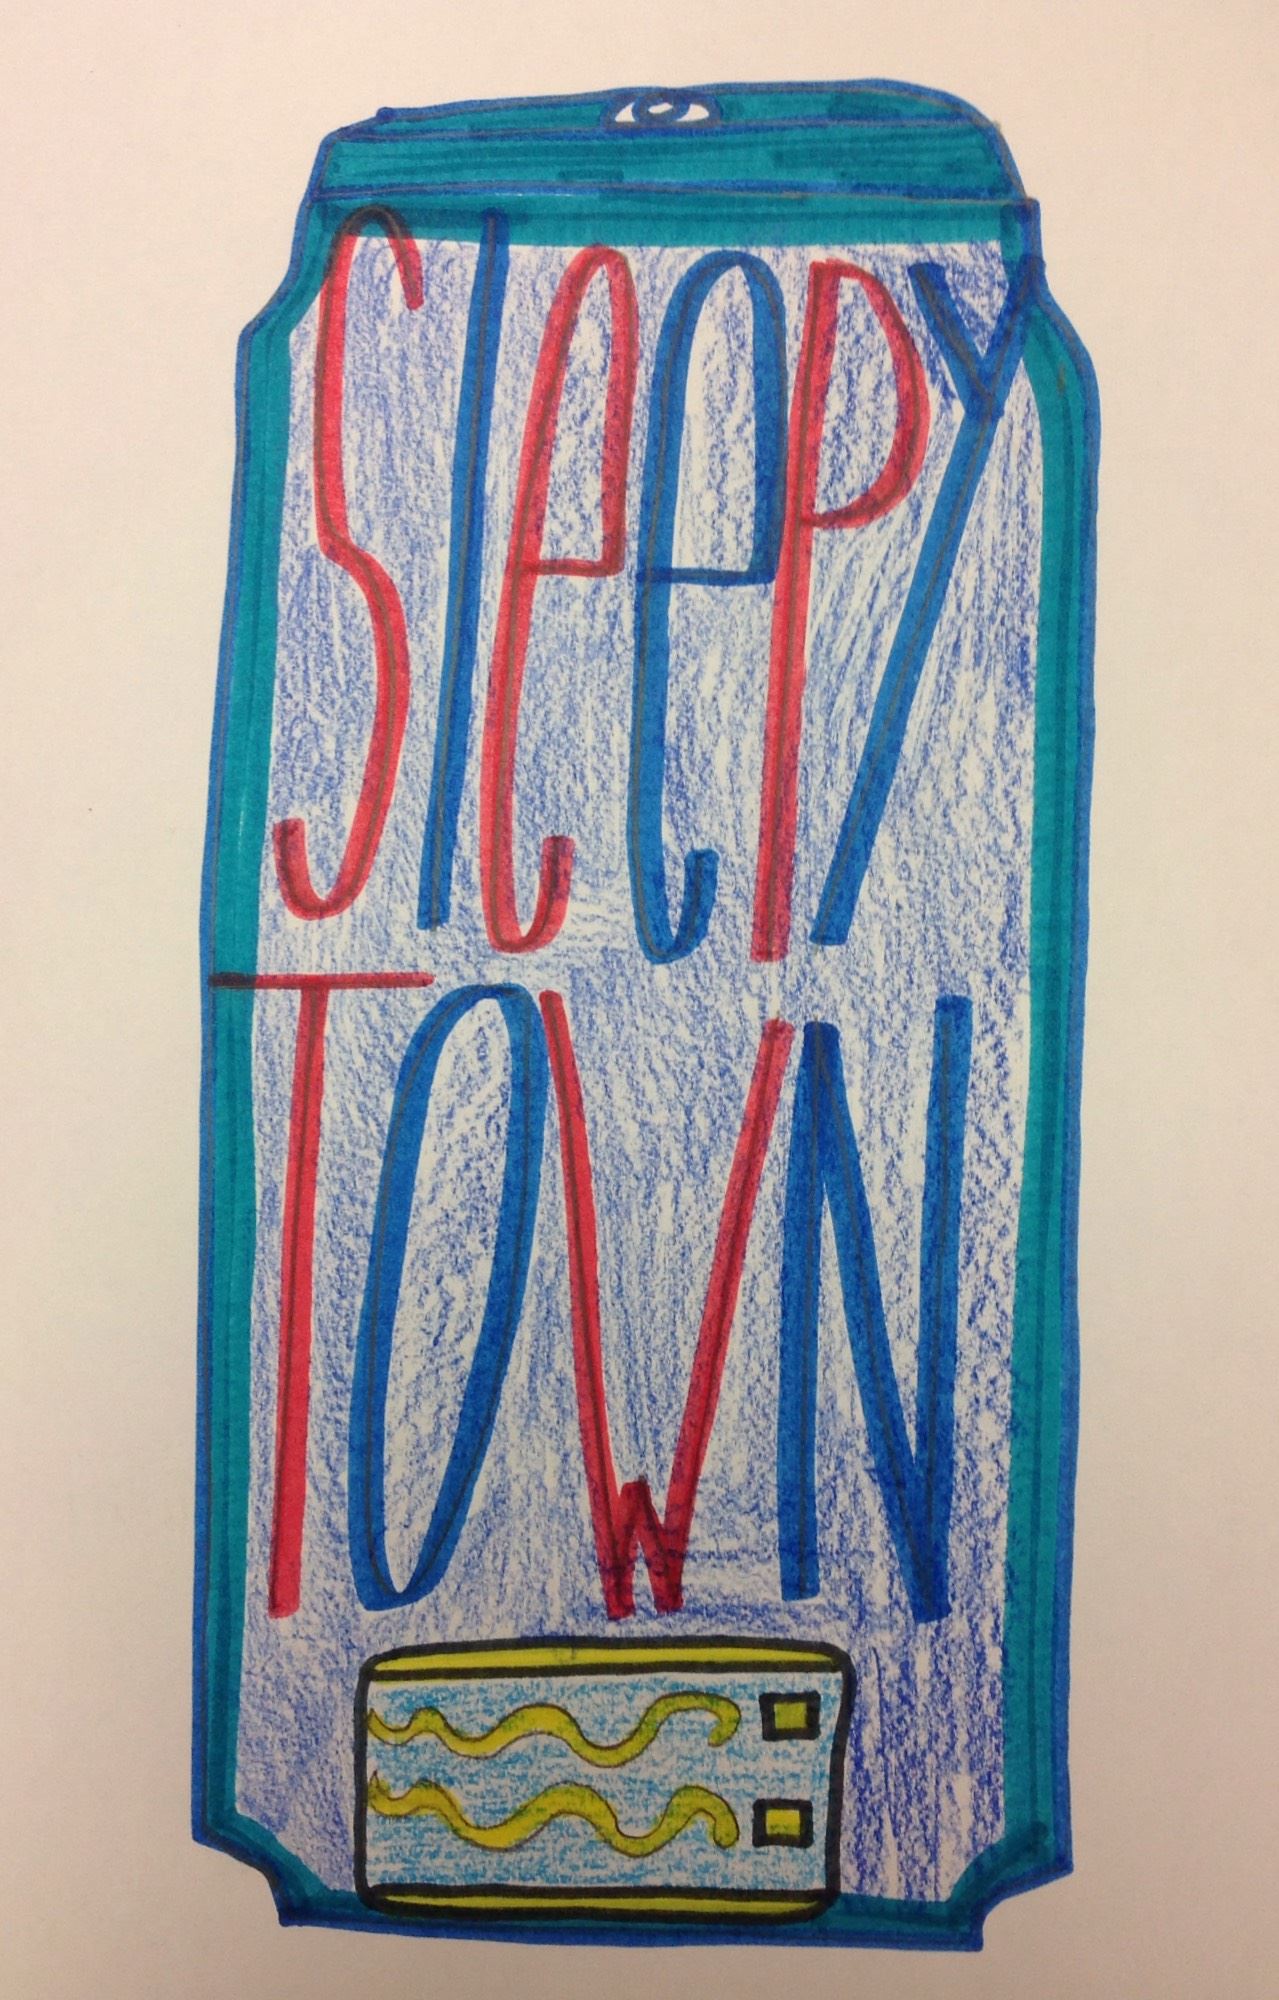 SleePY
TOWN